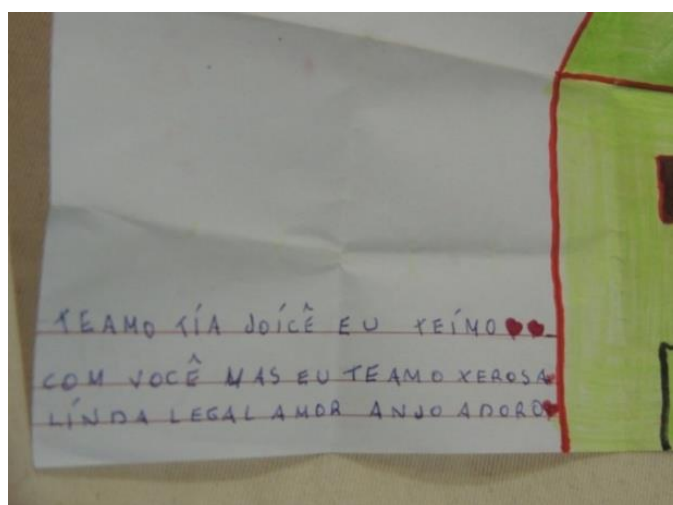 TEAMO TÍA JOÍCÊ EU TEÍMO
COM VOCÊ MAS EU TEAMO XEROSA
LÍNDA LEGAL AMOR ANJO ADORO